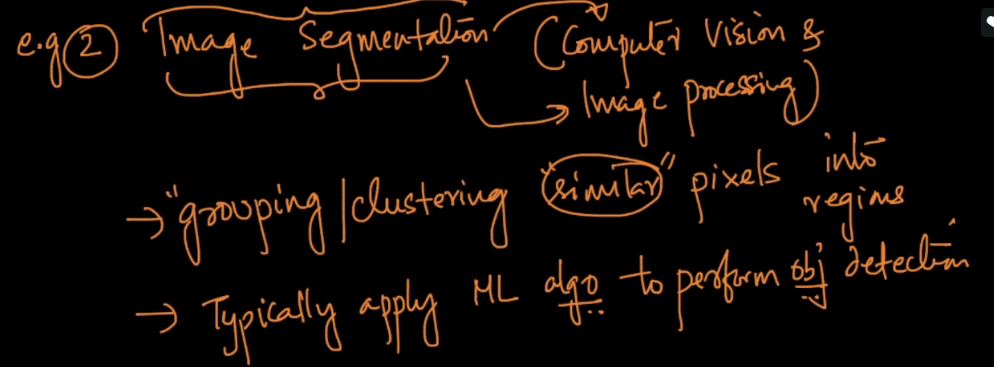 e.g ② Image Segmentation (Computer Vision &
→ Image processing)
→ "grouping/clustering "similar" pixels into
regions
→ Typically apply ML algo to perform obj detection